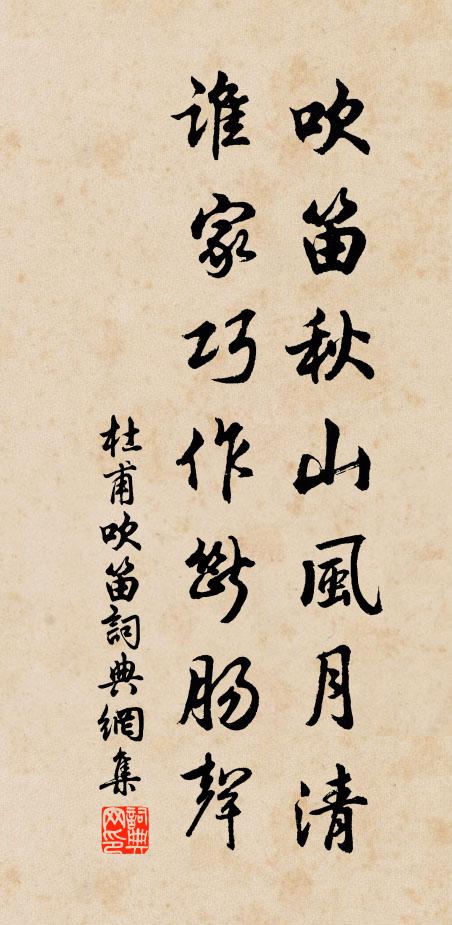 吹笛秋山風月清
誰家巧作斷腸聲
杜甫吹笛詞典網集
詞典网印